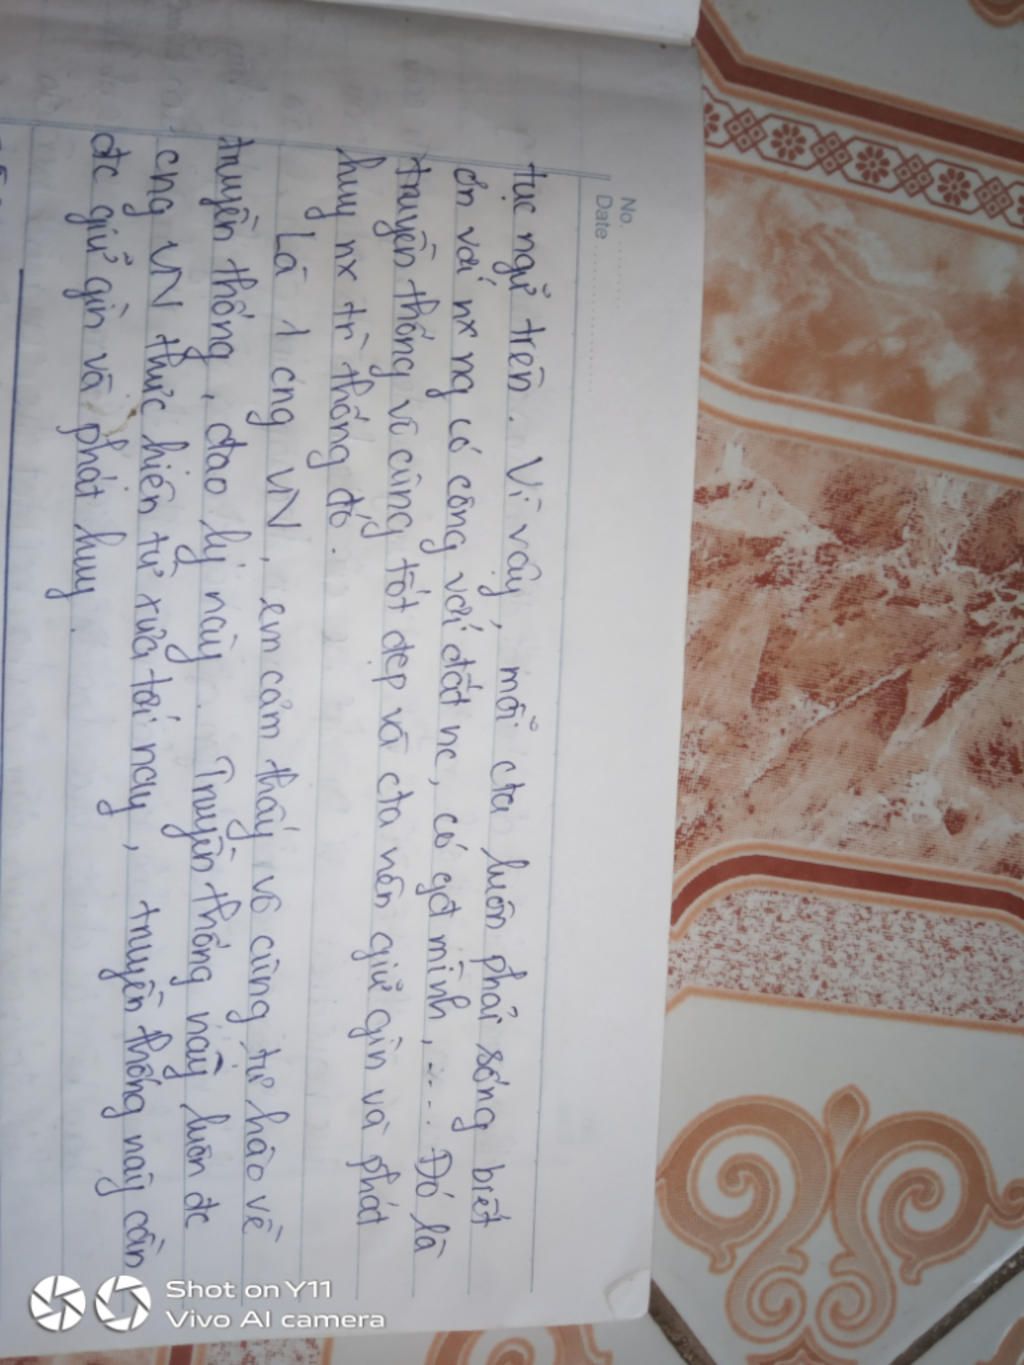 No. ............
Date ....................
tục ngữ trên. Vì vậy, mỗi cta luôn phải sống biết
ơn với nx ng có công với đất nc, có gđ mình, .... Đó là
truyền thống vô cùng tốt đẹp và cta nên giữ gìn và phát
huy nx tr` thống đó.
Là 1 cng VN, em cảm thấy vô cùng tự hào về
truyền thống, đạo lý này. Truyền thống này luôn đc
cng VN thực hiện từ xưa tới nay, truyền thống này cần
đc giữ gìn và phát huy.
Shot on Y11
Vivo AI camera